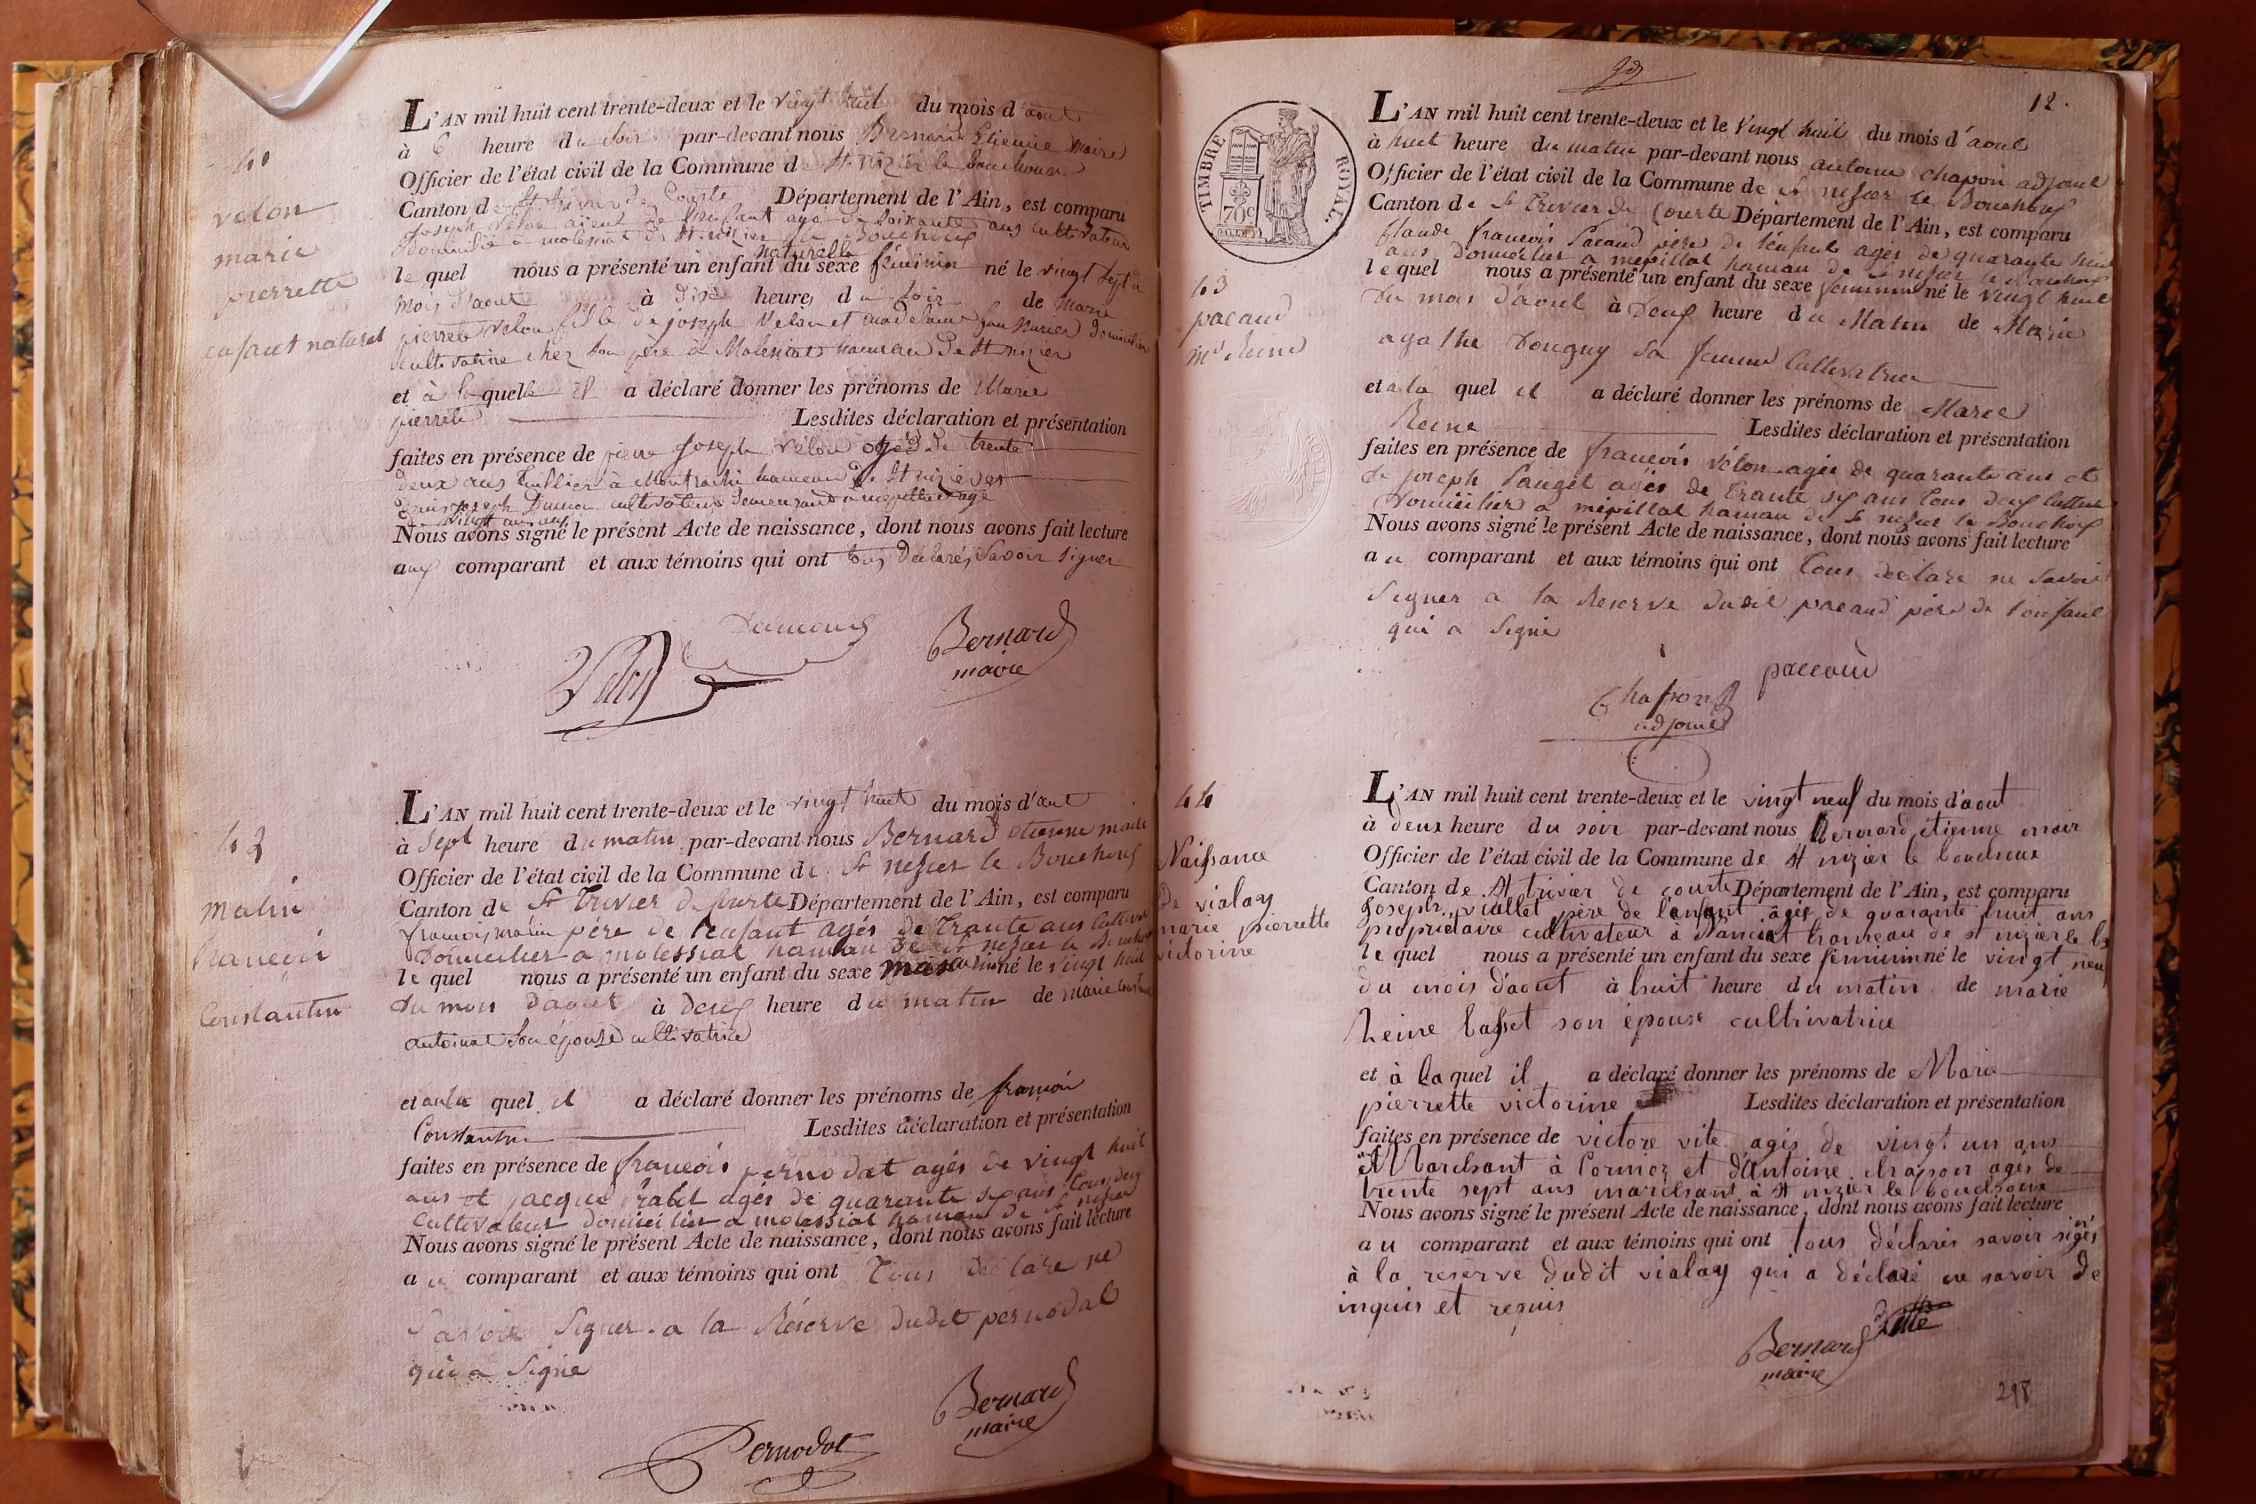 41
velon
marie
pierrette
enfant naturel
L'AN mil huit cent trente-deux et le vingt huit du mois d'aout
à 6 heure du soir par-devant nous Bernard Etienne maire
Officier de l'état civil de la Commune de St nizier le bouchoux
Canton de St trivier de Courte Département de l'Ain, est comparu
joseph velon ayeul de l'enfant agé de soixante ans cultivateur
domicilié à molessiat de St nizier le Bouchoux
le quel nous a présenté un enfant naturelle du sexe féminin né le vingt sept du
mois d'aout à dix heures du soir de marie
pierrette velon fille de joseph velon et madelaine domiciliée
cultivatrice chez son père à Molessiat hameau de St nizier
et à laquelle il a déclaré donner les prénoms de Marie
pierrette Lesdites déclaration et présentation
faites en présence de pierre joseph velon agé de trente
deux ans à hameau de St nizier et
joseph cultivateur demeurant à mepillat agé
de vingt
Nous avons signé le présent Acte de naissance, dont nous avons fait lecture
aux comparant et aux témoins qui ont tous déclarés savoir signer
Velon
Bernard
maire
42
Matin
francois
Constantin
L'AN mil huit cent trente-deux et le vingt huit du mois d'aout
à sept heure du matin par-devant nous Bernard etienne maire
Officier de l'état civil de la Commune de St nesier le Bouchoux
Canton de St Trivier de Courte Département de l'Ain, est comparu
francois matin père de l'enfant agés de trante ans cultivateur
Domicilier a molessiat hamau de St nesier le Bouchoux
le quel nous a présenté un enfant du sexe masculin né le vingt huit
du mois daout à deux heure du matin de marie
antoinat son épouse cultivatrice
et au quel il a déclaré donner les prénoms de francoi
Constantin Lesdites déclaration et présentation
faites en présence de francois pernodat agés de vingt huit
ans et jacque rabet agés de quarante six ans tous deux
Cultivateur domicilier a molassiat hamau de St nesier
Nous avons signé le présent Acte de naissance, dont nous avons fait lecture
au comparant et aux témoins qui ont tous declare ne
savoir signer a la Réserve dudit pernodat
qui a signé
Pernodat
Bernard
maire
12.
TIMBRE ROYAL
70c
43
pacaud
mie Reine
L'AN mil huit cent trente-deux et le vingt huit du mois d'aout
à huit heure du matin par-devant nous antoine chapon adjoint
Officier de l'état civil de la Commune de St nesier le Bouchoux
Canton de St Trivier de Courte Département de l'Ain, est comparu
Claude francois Pacaud père de l'enfant agés de quarante huit
ans Domicilier a mepillat hamau de St nesier le Bouchoux
le quel nous a présenté un enfant du sexe feminin né le vingt huit
Du mois d'aout à Deux heure du Matin de Marie
agathe Dougny sa femme Cultivatrice
et a la quel il a déclaré donner les prénoms de Marie
Reine Lesdites déclaration et présentation
faites en présence de francois velon agés de quarante ans et
de joseph Pauget agés de trante six ans tous deux cultivateur
Domicilier a mepillat hamau de St nesier le Bouchoux
Nous avons signé le présent Acte de naissance, dont nous avons fait lecture
au comparant et aux témoins qui ont tous declare ne savoir
signer a la Reserve dudit pacaud père de l'enfant
qui a signé
paccaud
Chapon
adjoint
44
Naissance
de vialay
marie pierrette
victorine
L'AN mil huit cent trente-deux et le vingt neuf du mois d'aout
à deux heure du soir par-devant nous Bernard étienne mair
Officier de l'état civil de la Commune de St nizier le bouchoux
Canton de St trivier de courte Département de l'Ain, est comparu
Joseph viallet père de l'enfant agés de quarante huit ans
propriétaire cultivateur à hameau de St nizier le b
le quel nous a présenté un enfant du sexe feminin né le vingt neuf
du mois d'aout à huit heure du matin de marie
Reine basset son épouse cultrivatrice
et à la quel il a déclaré donner les prénoms de Marie
pierrette victorine Lesdites déclaration et présentation
faites en présence de victore vite agés de vingt un ans
Marchant à Cormoz et d'Antoine chapon agés de
trente sept ans marchant à St nizier le bouchoux
Nous avons signé le présent Acte de naissance, dont nous avons fait lecture
au comparant et aux témoins qui ont tous déclarés savoir signés
à la reserve dudit vialay qui a déclaré ne savoir de
inquis et requis
Bernard
maire
Vitte
218